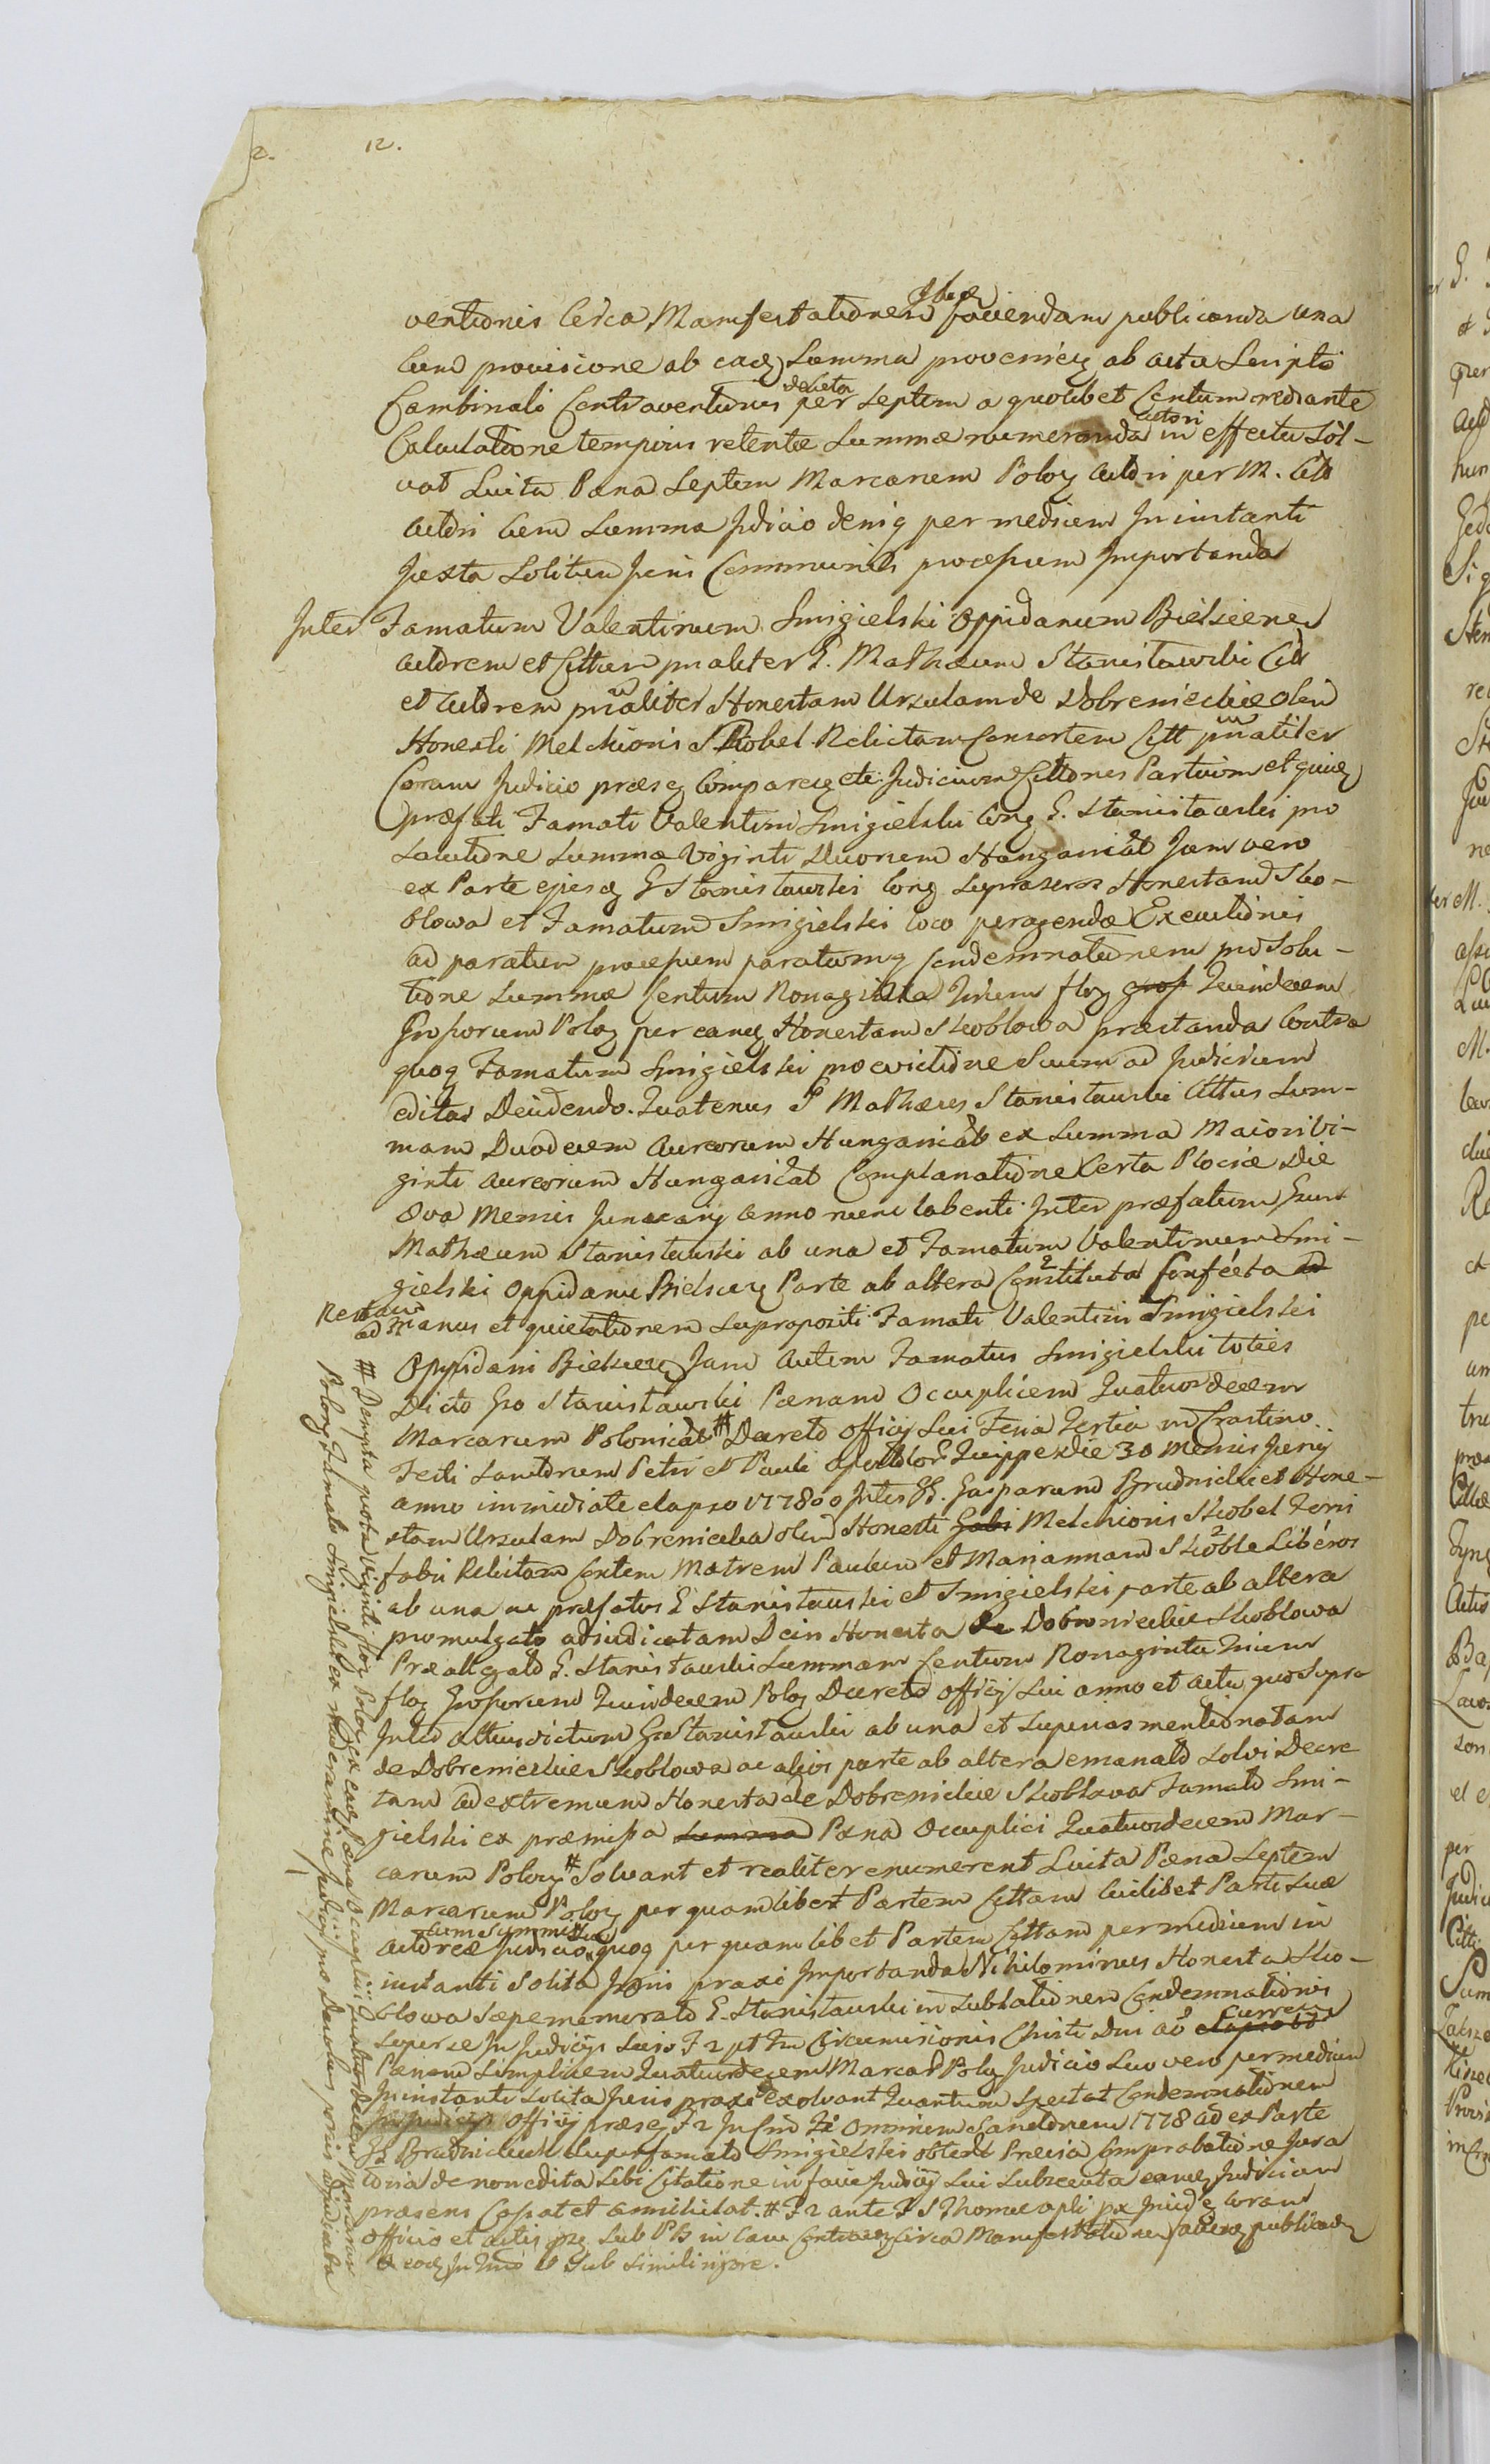 2.
12.
ventionis Circa Manifestationem faciendam publicanda una
Cum provisione ab eadq Summa provenieq ab actu Scripti
Cambinali Contraventionis deCleta per Septem a quolibet Centum mediante
Calculatione temporis retentæ Summæ numeranda Actori in effectu Sol-
vat Luita Pæna Septem Marcarum Poloq Actori per M. Citt
Actori Cum Summa Judicio deniq per medium In instanti
Juxta Solitum Juris Communis processum Importanda
Inter Famatum Valentinum Smigielski Oppidanum Bielscens
Actorem et Cittum prîaliter G. Mathæum Stanisławski Citt
et Actorem prîaliter Honestam Urszulam de Dobrenieckie olim
Honesti Melchioris Skobel Relictam Consortem Citt prîaliter
Coram Judicio præseq Compareq etc Judicium Cittones Partium et quidq
præfati Famati Valentini Smigielski Conq G. Stanisławski pro
Solutione Summæ Viginti Duorum Hungaricât Jam vero
ex Parte ejusq G Stanisławski Conq Supraseros Honestam Sko-
blowa et Famatum Smigielski loco peragendæ Executionis
ad paratum processum paratamq Condemnationem pro Solu-
tione Summæ Centum Nonaginta Trium floq gros Quindecem
Grossorum Poloq per eamq Honestam Skoblowa præstanda Contra
quoq Famatum Smigielski pro evictione Suum ad Judicium
editas Decidendo. Quatenus G Mathæus Stanisławski Cittus Sum-
mam Duodecem Aureorum Hungaricât ex Summa Maiori Vi-
ginti Aureorum Hungaricât Complanatione Certa Plociæ Die
8va Mensis Januarij Anno nunc labenti Inter præfatum Grum
Mathæum Stanisławski ab una et Famatum Valentinum Smi-
gielski Oppidanu Bielsceq Parte ab altera Constituta Confecta ad
Restau
ad Manus et quietationem Supropositi Famati Valentini Smigielski
Oppidani Bielsceq Jam Autem Famatus Smigielski toties
Dicto Gro Stanisławski Pænam Occuplicem Quatuordecem
Marcarum Polonicât # Decreto Officij Sui Feria Tertia in Crastino
Festi Sanctorum Petri et Pauli Apostolor Quippe Die 30 Mensis Junij
anno immediate elapso 1778vo Inter GG. Gasparum Brudnicki et Hone-
stam Urszulam Dobreniecka olim Honesti Gabi Melchioris Skobel Ferri
fabri Relictam Contem Matrem Paulum et Mariannam Skoble Liberos
ab una ac præfatos G Stanisławski et Smigielski parte ab altera
promulgato adiudicatam Dein Honesta de Dobrenieckie Skoblowa
Præallegato G. Stanisławski Summam Centum Nonaginta Trium
floq Grossorum Quindecem Poloq Decreto Officij Sui anno et actu quo Supra
Inter attusdictum Grum Stanisławski ab una et Superius mentionatam
de Dobrenieckie Skoblowa ac alios parte ab altera emanato Solvi Decre
tam ad extremum Honesta de Dobrenieckie Skoblowa Famato Smi-
gielski ex præmissa Summa Pæna Occuplici Quatuordecem Mar-
carum Poloq # Solvant et realiter enumerent Luita Pæna Septem
Marcarum Poloq per quamlibet Partem Cittam Cuilibet Parti Suæ
Actoreæ cum Summis Suis Judicio quoq per quamlibet Partem Cittam per medium in
instanti Solita Juris praxi Importanda Nihilominus Honesta Sko-
blowa Sæpememorato G. Stanisławski in Sublationem Condemnationis
Super se In Judicijs Suis F 2 pt Fm Circumcisionis Christi Dni aô elapso Curren
Pænam Simplicem Quatuordecem Marcar Poloq Judicio Suo vero per medium
In instanti Solita Juris praxi exolvant Quantum Spectat Condemnationem
In Judicijs Officij præseq F 2 In Cno Omnium Sanctorum 1778 ad ex Parte
G Brudnicki Super Famato Smigielski obtent Prævia Comprobatione Jura
toria de non edita Sibi Citatione in facie Judicij Sui Subsecuta eamq Judicium
præsens Cassat et annihilat. # F 2 ante F S Thomæ Apli px coram
Officio et actis præq Sub PB in Casu Contraveq Circa Manifestationem facieq publicadq
A eodq In Tmo et Sub Simili rigore.
# Dempta quota Viginti floq Poloq ex eadq Pæna Occuplici Quatuordecem Marcarum
Poloq Famato Smigielski ex moderamine Judicij pro Decretus prioris adjudicata